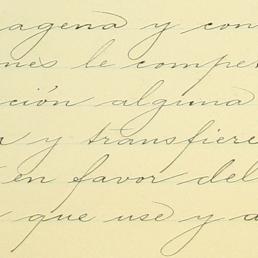 agena y con
nes le compet
ción alguna
y transfiere
en favor del
que use y d